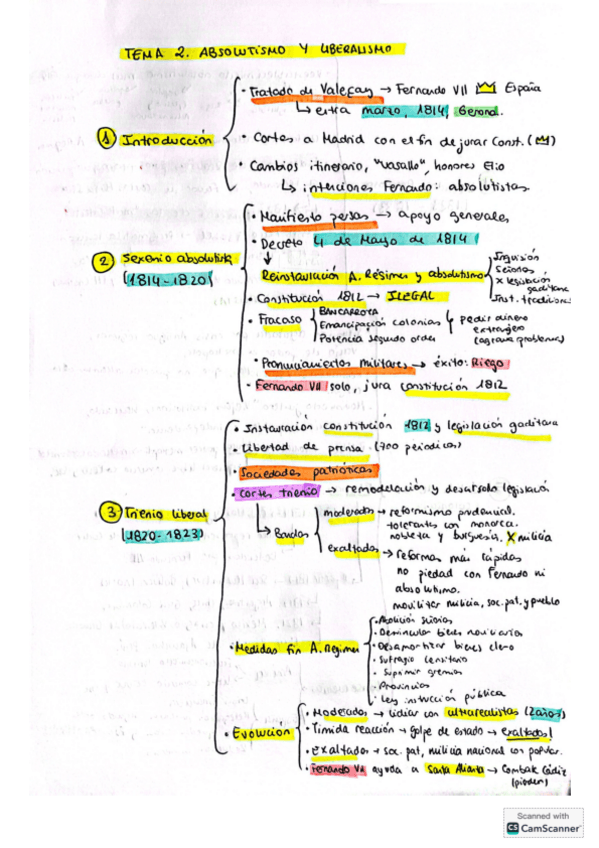 TEMA 2. ABSOLUTISMO Y LIBERALISMO
① Introducción
· Tratado de Valeçay → Fernando VII España
↳ entra marzo, 1814, Gerona.
· Cortes a Madrid con el fin de jurar Const.
· Cambios itinerario, "vasallo", honores Elio
↳ intenciones Fernando: absolutistas.
② Sexenio absolutista
(1814-1820)
· Manifiesto persas → apoyo generales
· Decreto 4 de Mayo de 1814
↓
Reinstauración A. Régimen y absolutismo
Inquisición
Señoríos
X legislación gaditana
Inst. tradicional
· Constitución 1812 → ILEGAL
· Fracaso
BANCARROTA
Emancipación colonias
Potencia segundo orden
pedir dinero
extranjero
(agrava problemas)
· Pronunciamientos militares → éxito: Riego
· Fernando VII solo, jura constitución 1812
③ Trienio liberal
(1820-1823)
· Instauración constitución 1812 y legislación gaditana
· Libertad de prensa (700 periodicos)
· Sociedades patrióticas
· Cortes trienio → remodelación y desarrollo legislación
↳ Bandos
moderados → reformismo prudencial.
tolerantes con monarca.
nobleza y burguesía. X milicia
exaltados → reformas más rápidas
no piedad con Fernando ni
absolutismo.
movilizar milicia, soc. pat. y pueblo
· Medidas fin A. Regimen
· Abolición señorios
· Desvincular bienes nobiliarios
· Desamortizar bienes clero
· Sufragio censitario
· Suprimir gremios
· Provincias
· Ley instrucción pública
· Evolución
· Moderados → lidiar con ultrarealistas (2años)
· Tímida reacción → golpe de estado → exaltados!
· Exaltados → soc. pat, milicia nacional con popular.
· Fernando VII ayuda a Santa Alianza → Combate Cádiz
(pierden)
Scanned with
CS CamScanner